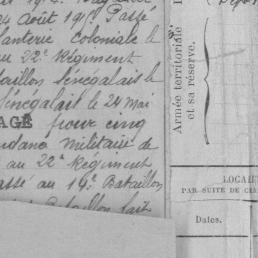 24 Août 191 Passé
fanterie coloniale le
au 22e Régiment
taillon Sénégalais le
Sénégalais le 24 mai
AGÉ pour cinq
ndance militaire de
au 22e Régiment
assé au 14e Bataillon
Bataillon fait
Armée territoriale
et sa réserve.
LOCALI
PAR SUITE DE CHA
Dates.